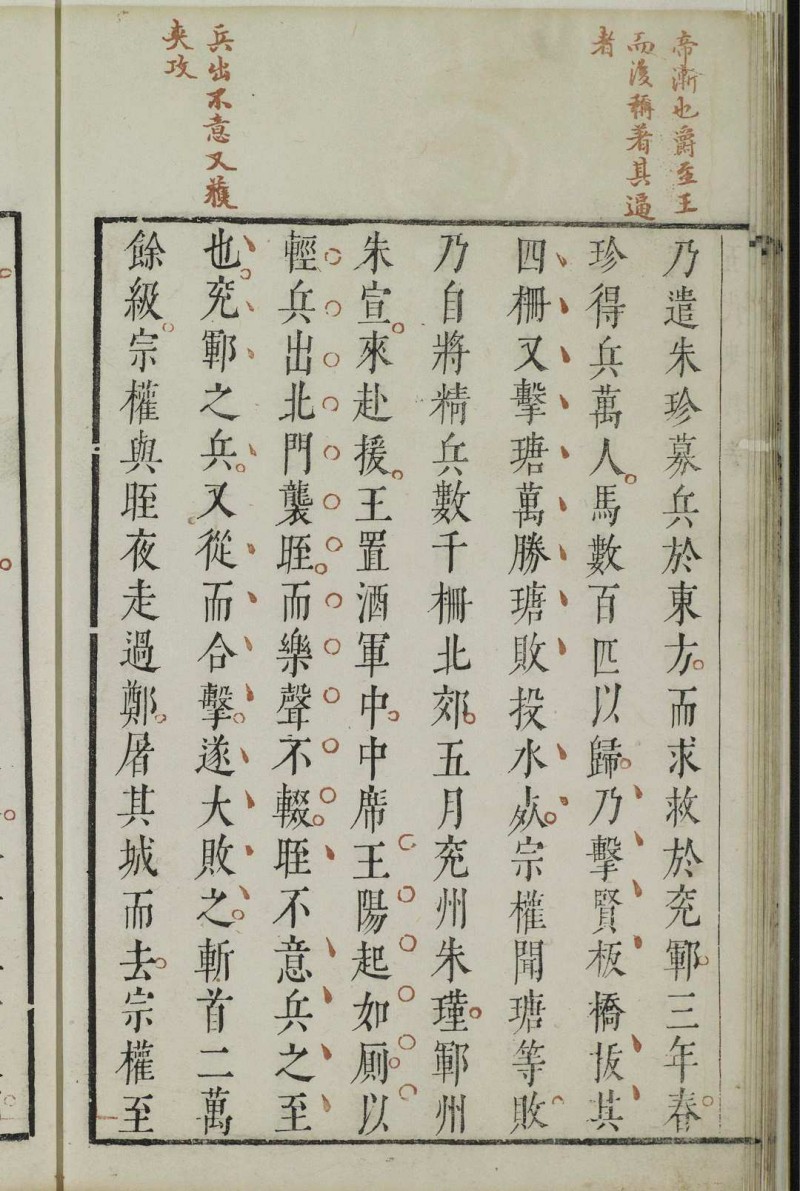 帝漸也爵至王
而後稱著其逼
者
兵出不意又獲
夾攻
乃遣朱珍募兵於東方而求救於兖鄆三年春
珍得兵萬人馬數百匹以歸乃擊賢板橋拔其
四柵又擊瑭萬勝瑭敗投水死宗權聞瑭等敗
乃自將精兵數千柵北郊五月兖州朱瑾鄆州
朱宣來赴援王置酒軍中中席王陽起如厠以
輕兵出北門襲晊而樂聲不輟晊不意兵之至
也兖鄆之兵又從而合擊遂大敗之斬首二萬
餘級宗權與晊夜走過鄭屠其城而去宗權至